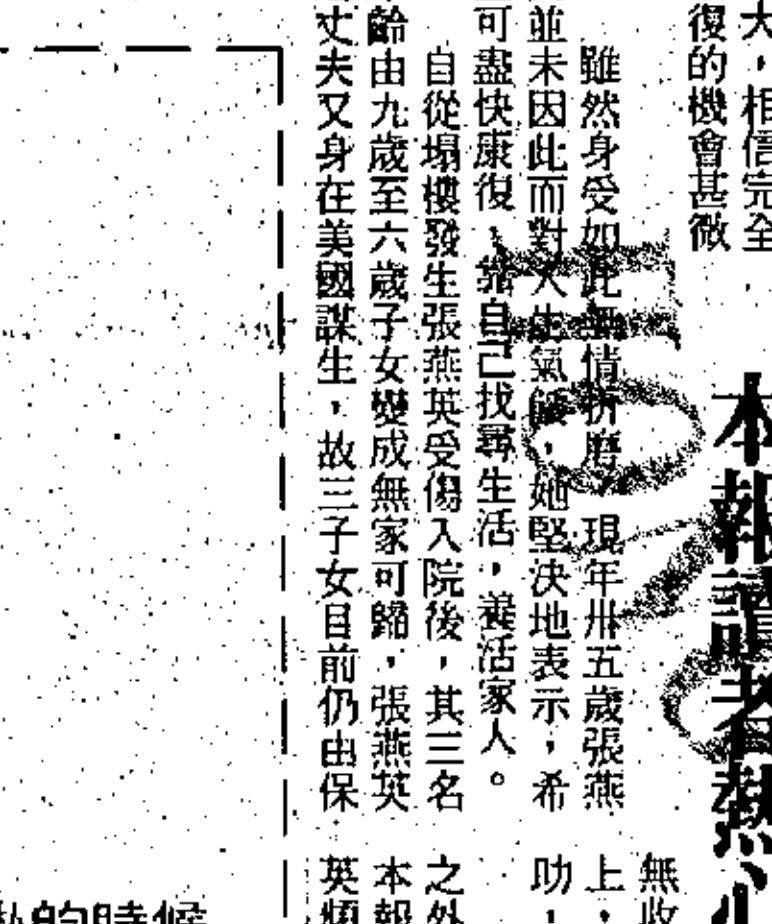 大，相信完全
復的機會甚微
本報讀者熱心
雖然身受如此無情折磨，現年卅五歲張燕
並未因此而對人生氣餒，她堅決地表示，希
可盡快康復，靠自己找尋生活，養活家人。
自從塌樓發生張燕英受傷入院後，其三名
齡由九歲至六歲子女變成無家可歸，張燕英
丈夫又身在美國謀生，故三子女目前仍由保
無收
上，
助，
之外
本報
英煩
的時候